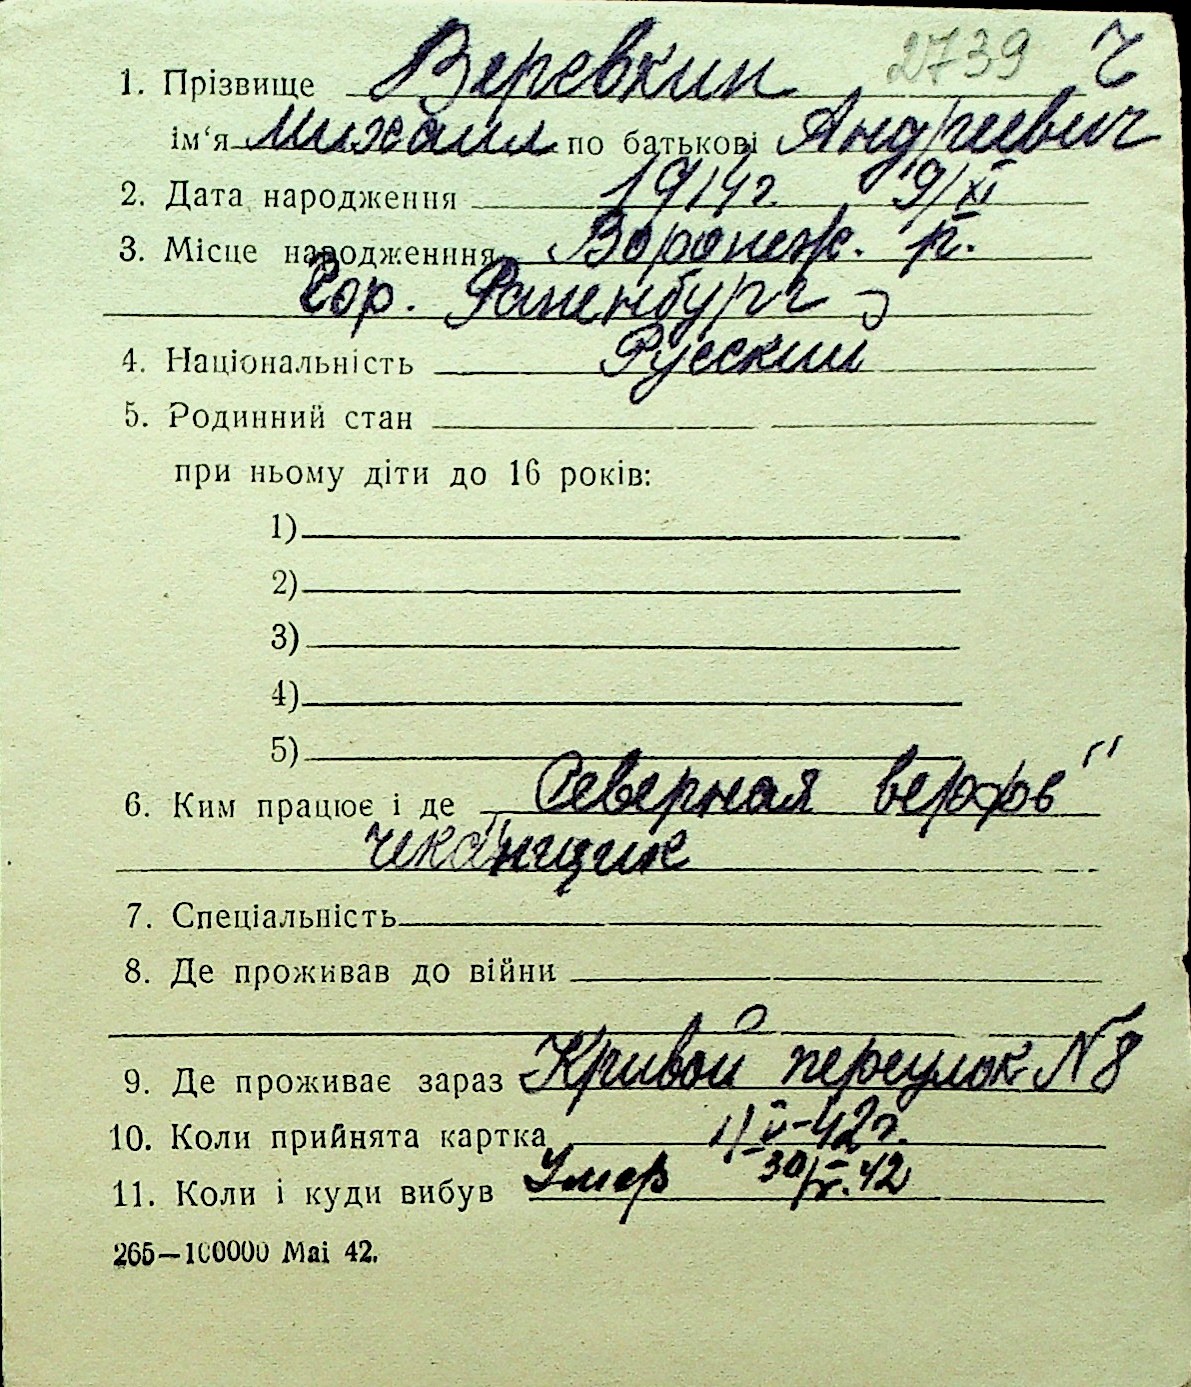 2739 Ч
1. Прізвище Веревкин
ім'я Михаил по батькові Андреевич
2. Дата народження 1914 г. 9/XI
3. Місце народженння Воронеж. р.
Гор. Раненбург
4. Національність Русский
5. Родинний стан
при ньому діти до 16 років:
1)
2)
3)
4)
5)
6. Ким працює і де "Северная верфь"
чеканщик
7. Спеціальність
8. Де проживав до війни
9. Де проживає зараз Кривой переулок N 8
10. Коли прийнята картка
11. Коли і куди вибув Умер 30/V.42
265—100000 Mai 42.